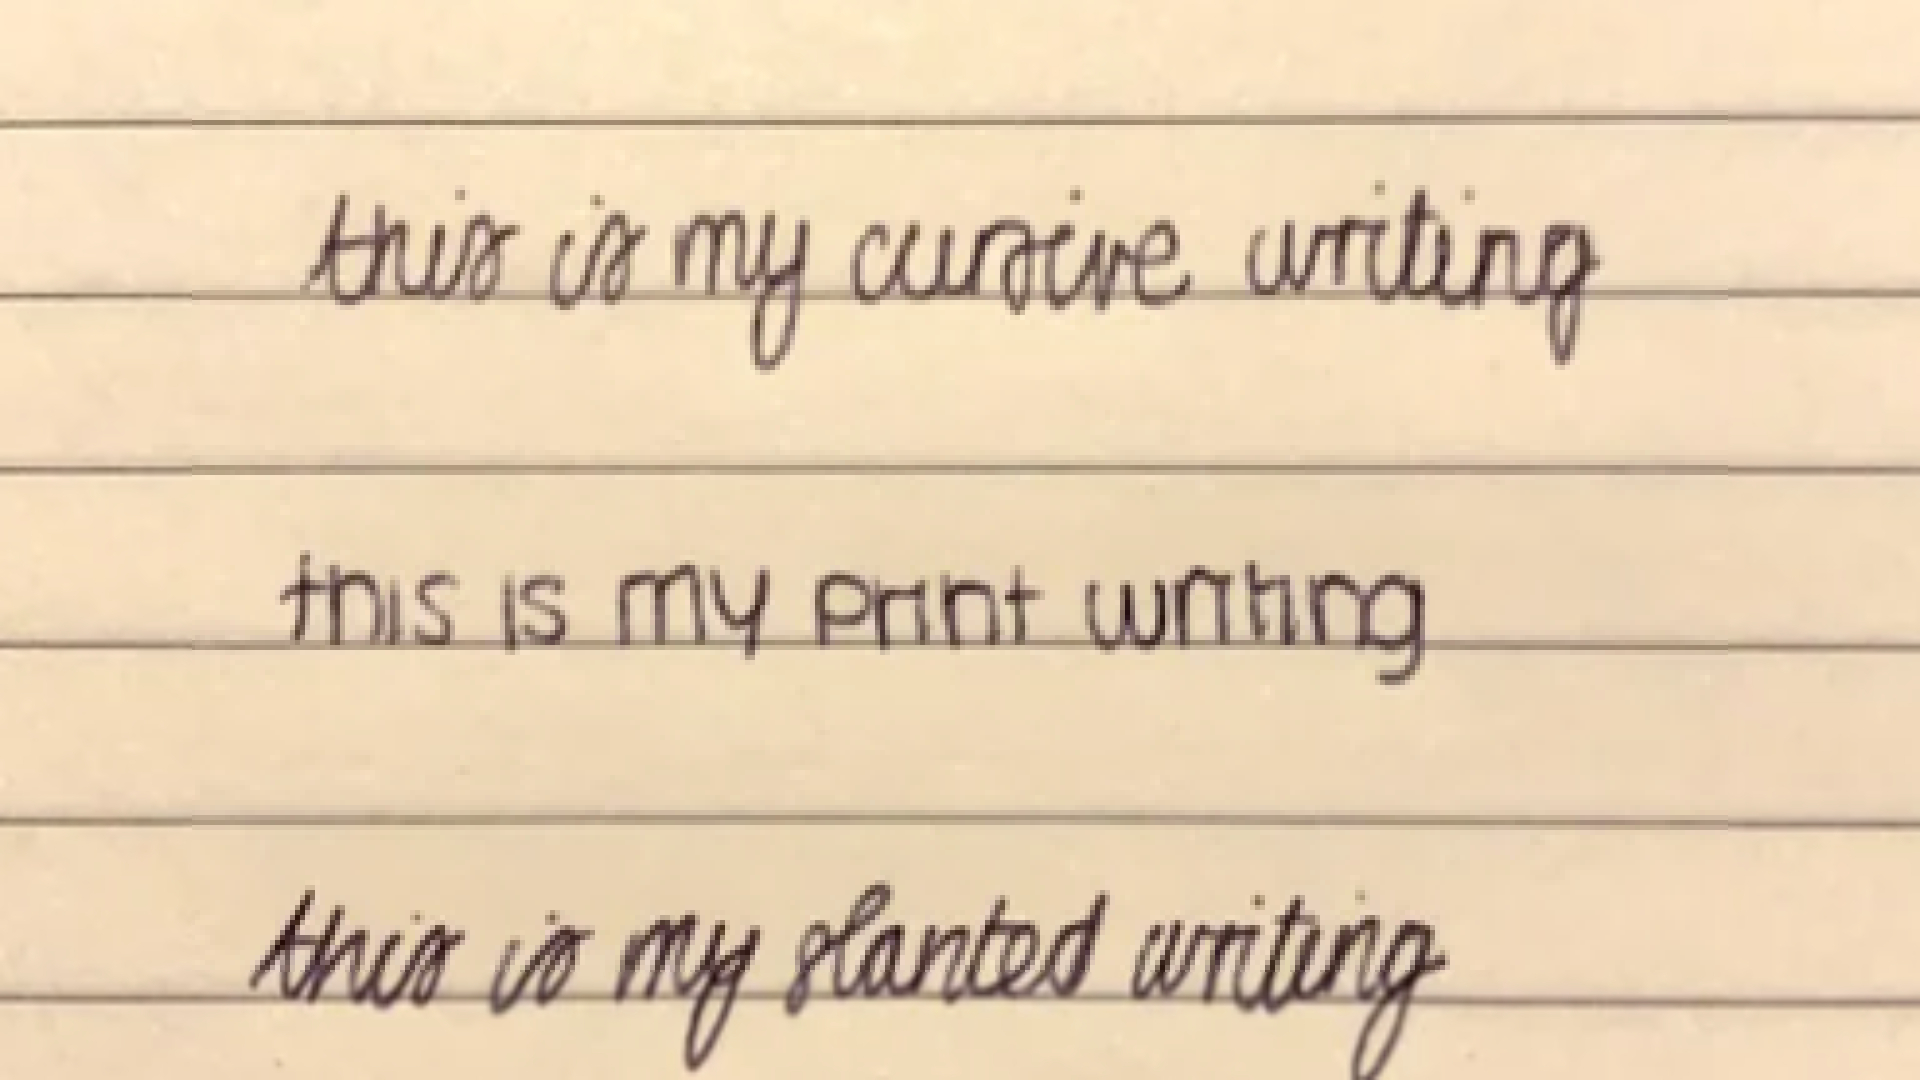 this is my cursive writing
this is my print writing
this is my slanted writing